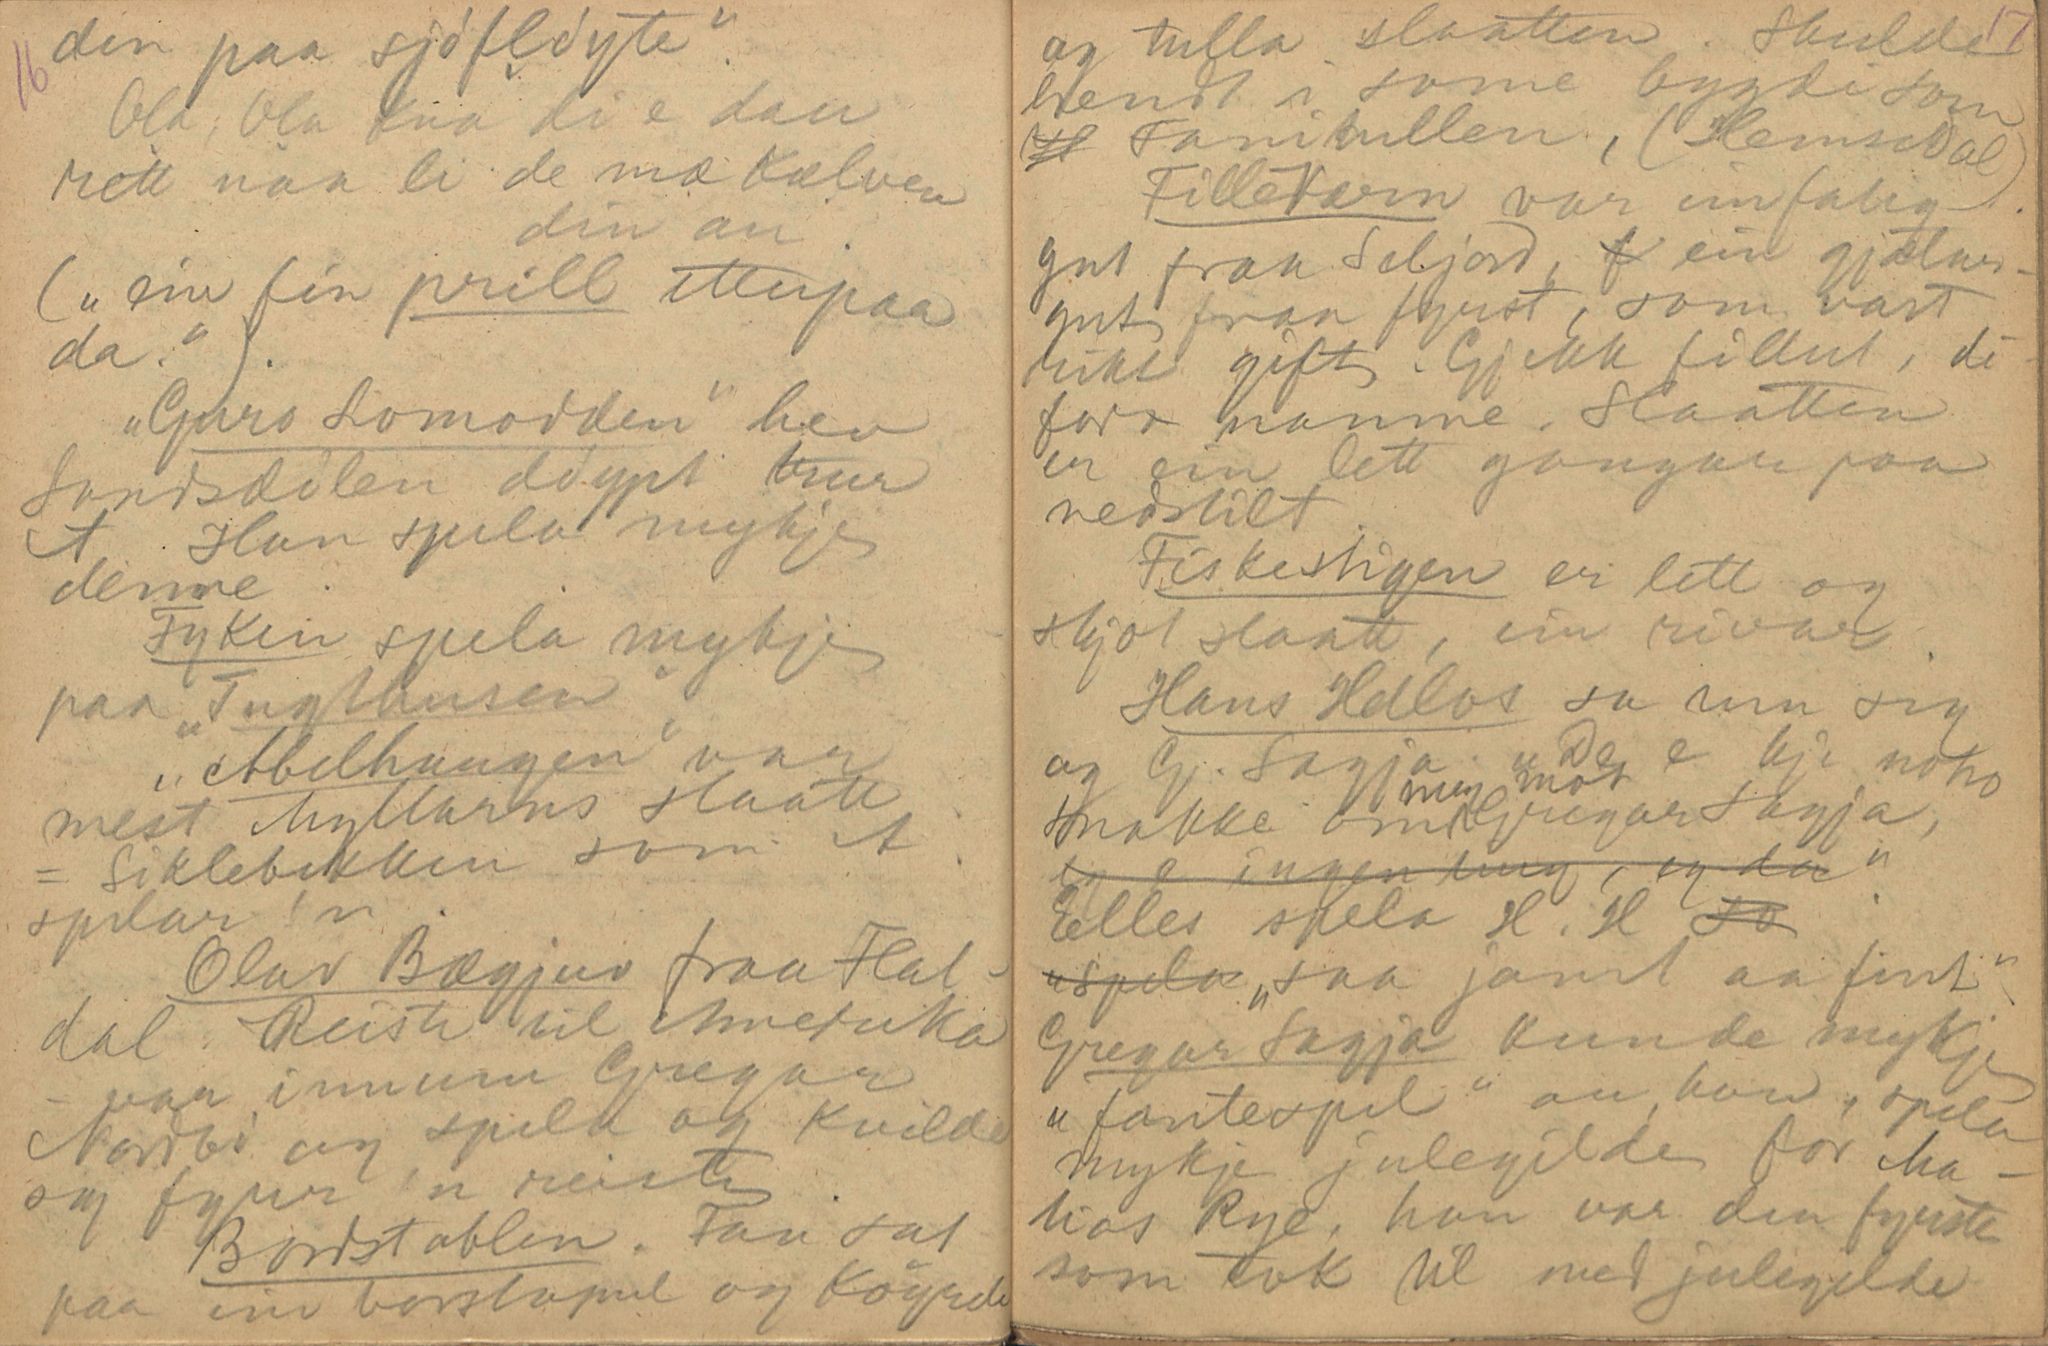 16
den paa sjóflöyte".
Ola, Ola Kna di e dau
rett naa li de mæ Kælven
din an.
(„ein fin prill etterpaa
da.").
„Guro Lomodden" hev
Sandsdälen döypt
t. Han spela mykje
denne.
Fyken spela mykje
paa „Tugthusen"
„Abelhaugen" var
mest Myllarns slaatt
= Siklebekken som A.
spelar 'n.
Olav Bægjuv fraa Flat-
dal. Reiste til Amerika
– var innum Gregar
Nordbö og spela og Kvilde
seg fyrr 'n reiste.
Bordstabben. Fan sat
paa ein borstapul og Köyrde
17
og tulla slaatten. Skulde
hendt i same bygdi som
Fanitullen, (Hemsedal).
FilleVarn var ein fatig
gut fraa Seljord, ein gjætar-
gut fraa fyrst, som vart
rikt gift. Gjekk fillut, di-
for namne. Slaatten
er ein lett gangar paa
nedstilt.
Fiskestigen er lett og
skjot slaatt, ein rivar.
Hans Hellos sa um sig
og G. Sagja. „De e kje noko
meg mot
snakke om Gregar Sagja,
eg e ingen ting, eg da"
Elles spela H. H so
"spela „saa jamt aa fint"
Gregar Sagja kunde mykje
„fantespel" au, han, spela
mykje julegilde for Ma-
tias Rye, han var den fyrste
som tok til med julegilde